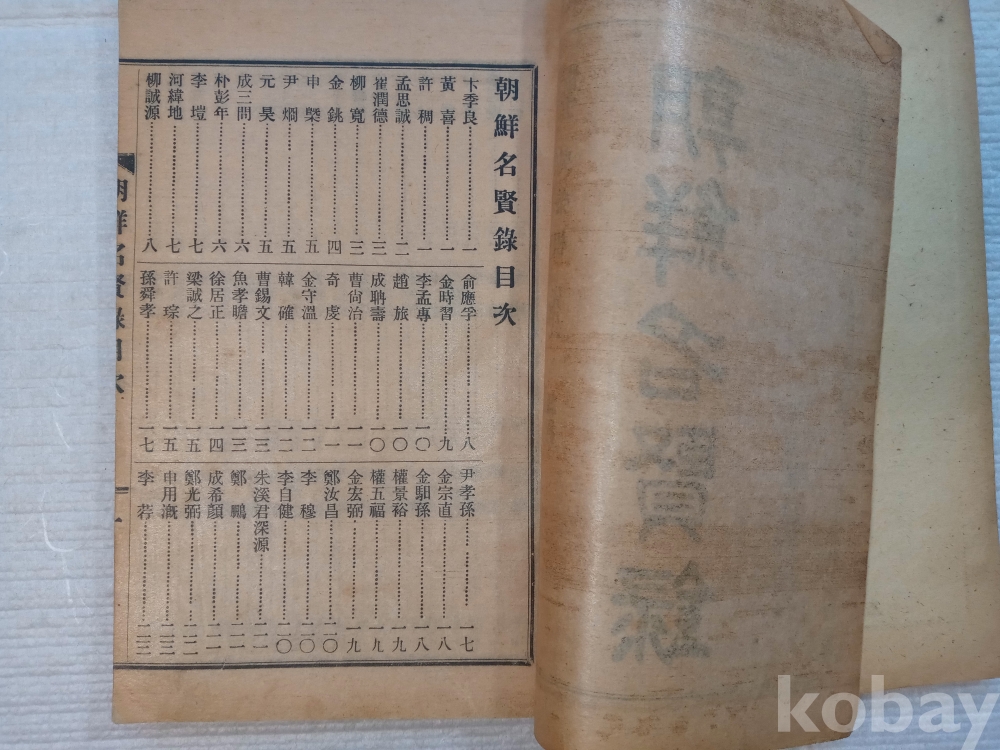 朝鮮名賢錄目次
卞季良 一
黃喜 一
許稠 一
孟思誠 二
崔潤德 三
柳寬 三
金銚 四
申槩 五
尹烱 五
元昊 五
成三問 六
朴彭年 六
李塏 七
河緯地 七
柳誠源 八
兪應孚 八
金時習 九
李孟專 一〇
趙旅 一〇
成聃壽 一〇
曹尙治 一一
奇虔 一一
金守溫 一二
韓確 一二
曹錫文 一三
魚孝瞻 一三
徐居正 一四
梁誠之 一五
許琮 一五
孫舜孝 一七
尹孝孫 一七
金宗直 一八
金馹孫 一八
權景裕 一九
權五福 一九
金宏弼 一九
鄭汝昌 二〇
李穆 二〇
李自健 二〇
朱溪君深源 二一
鄭鵬 二一
成希顔 二一
鄭光弼 二二
申用漑 二三
李荇 二三
朝鮮名賢錄目次 一
朝鮮名賢錄
kobay